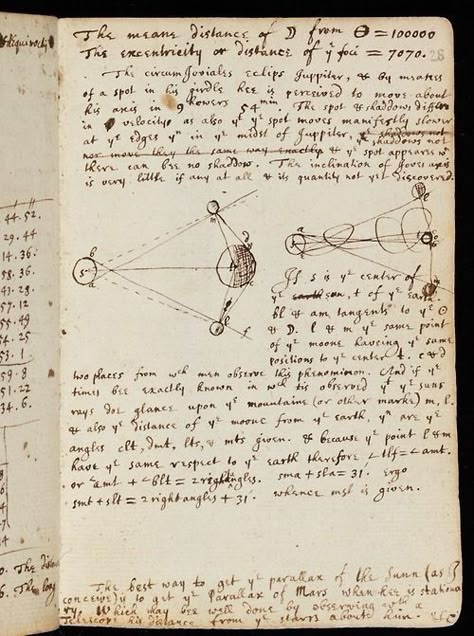 The meane distance of ☽ from ⊖ = 100000
The excentricity or distance of yᵉ foci = 7070. 28
The circumJoviales eclips Juppiter, & by meanes
of a spot in his girdle hee is perceived to move about
his axis in 9 howers 54 min. The spot & shaddows differ
in velocity as also yᵉ spot moves manifestly slower
at yᵉ edges yⁿ in yᵉ midst of Juppiter, yᵉ shaddows not
nor move they the same way exactly & yᵉ spot appeares wⁿ
there can bee no shaddow. The inclination of Joves axis
is very little if any at all & its quantity not yet discovered.
If s is yᵉ center of
yᵉ earth sun, t of yᵉ Earth
bl & am tangents to yᵉ ⊙
& ☽. l & m yᵉ same point
of yᵉ moone haveing yᵉ same
positions to yᵉ center t. c & d
two places from wᶜʰ men observe this phenomenon. And if yᵉ
times bee exactly known in wᶜʰ tis observed yᵗ yᵉ suns
rays doe glance upon yᵉ mountaine (or other marke) m, l.
& also yᵉ distance of yᵉ moone from yᵉ earth, yⁿ are yᵉ
angles clt, dmt, lts, & mts given. & because yᵉ point l & m
have yᵉ same respect to yᵉ earth therefore ∠tlf = ∠amt.
or ∠amt + ∠blt = 2 right angles. sma + sla = 31. ergo
smt + slt = 2 right angles + 31. whence mst is given.
The best way to get yᵉ parallax of the Sunn (as I
conceive) is to get yᵉ Parallax of Mars when hee is stationa
ry. Which may bee well done by observing with a
Telescope his distance from yᵉ starrs about him.
44.52.
29.44
14.36.
58.36
43.28.
57.12
55.49
54.25
53.1
59.8
51.22
34.6.